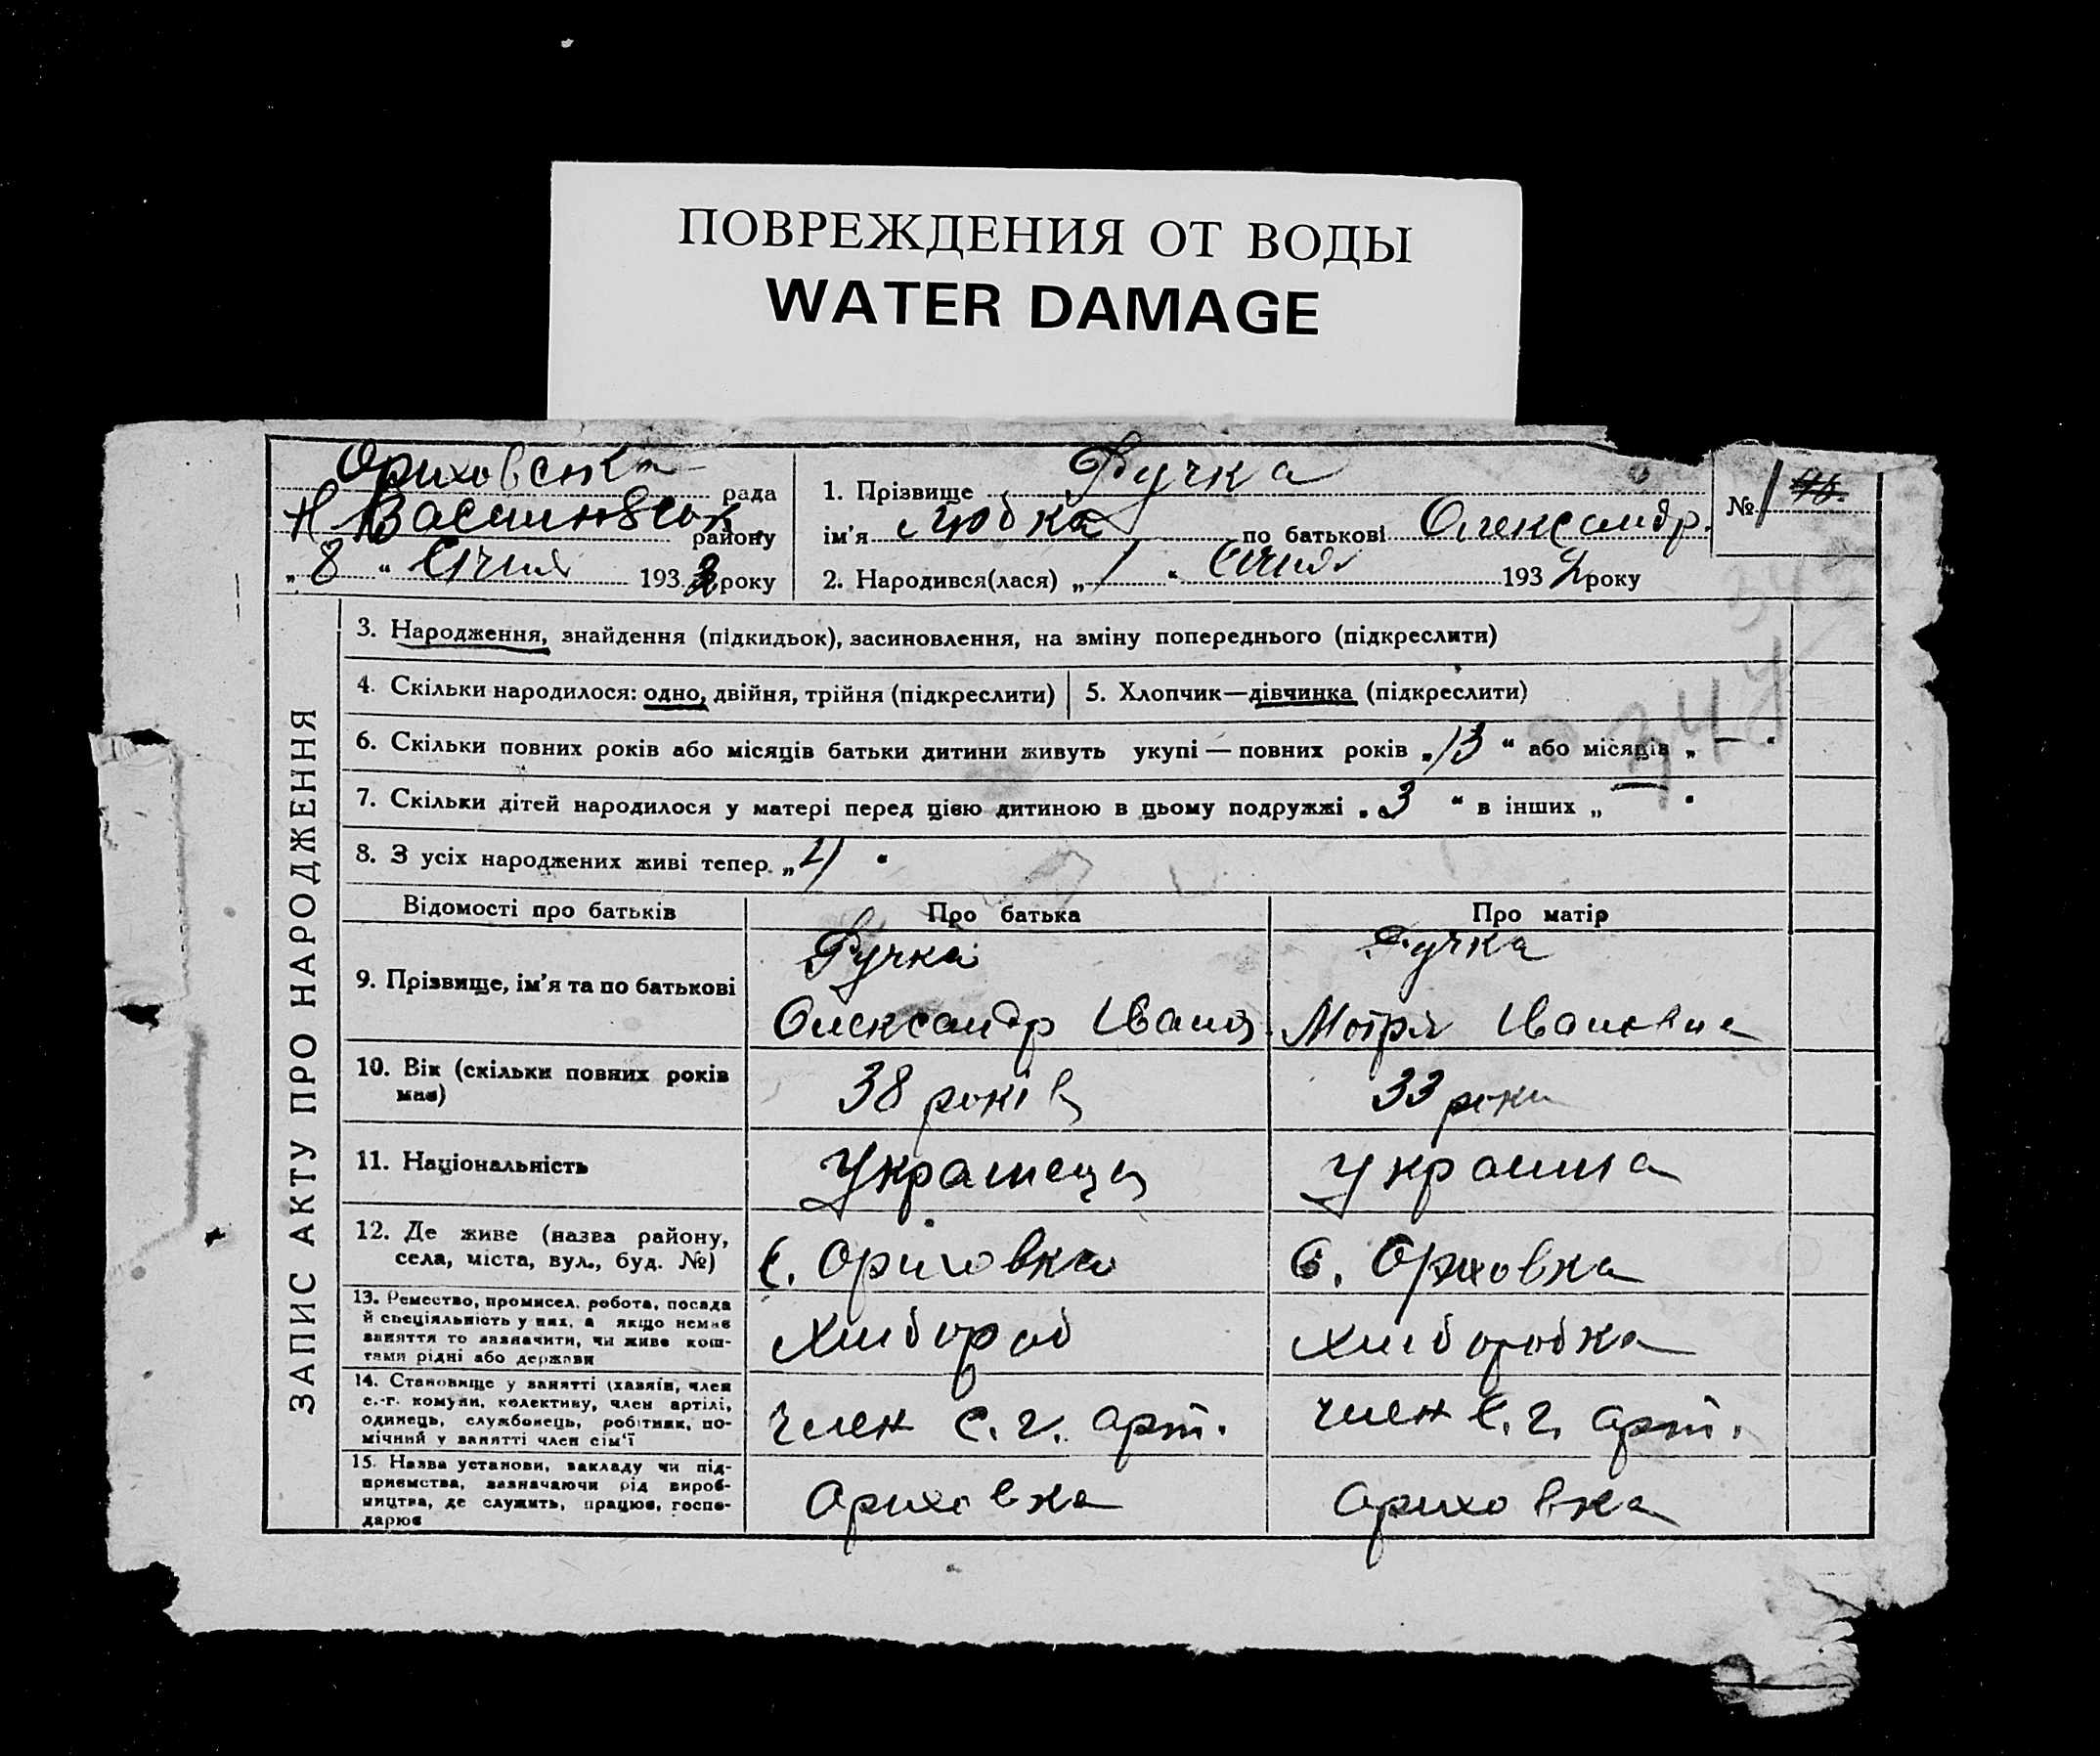 ПОВРЕЖДЕНИЯ ОТ ВОДЫ
WATER DAMAGE
Ориховська рада
району
„8“ Січня 193 року
1. Прізвище Ручка
ім'я Любка по батькові Олександр.
№ 1
2. Народився(лася) „1“ Січня 1932 року
ЗАПИС АКТУ ПРО НАРОДЖЕННЯ
3. Народження, знайдення (підкидьок), засиновлення, на зміну попереднього (підкреслити)
4. Скільки народилося: одно, двійня, трійня (підкреслити)
5. Хлопчик—дівчинка (підкреслити)
6. Скільки повних років або місяців батьки дитини живуть укупі — повних років „13“ або місяців „—“
7. Скільки дітей народилося у матері перед цією дитиною в цьому подружжі „3“ в інших „—“
8. З усіх народжених живі тепер „4“
Відомості про батьків
Про батька
Про матір
9. Прізвище, ім'я та по батькові
Ручка
Олександр Іванов.
Ручка
Мотря Івановна
10. Вік (скільки повних років
має)
38 років
33 роки
11. Національність
Українець
Українка
12. Де живе (назва району,
села, міста, вул., буд. №)
с. Ориховка
с. Ориховка
13. Ремество, промисел, робота, посада
й спеціяльність у них, а якщо немає
заняття то зазначити, чи живе кош-
тами рідні або держави
Хлібороб
Хліборобка
14. Становище у занятті (хазяїн, член
с.-г. комуни, колективу, член артілі,
одинець, службовець, робітник, по-
мічний у занятті член сім'ї
член с. г. арт.
член с. г. арт.
15. Назва установи, закладу чи під-
приємства, зазначаючи рід вироб-
ництва, де служить, працює, госпо-
дарює
Ориховка
Ориховка